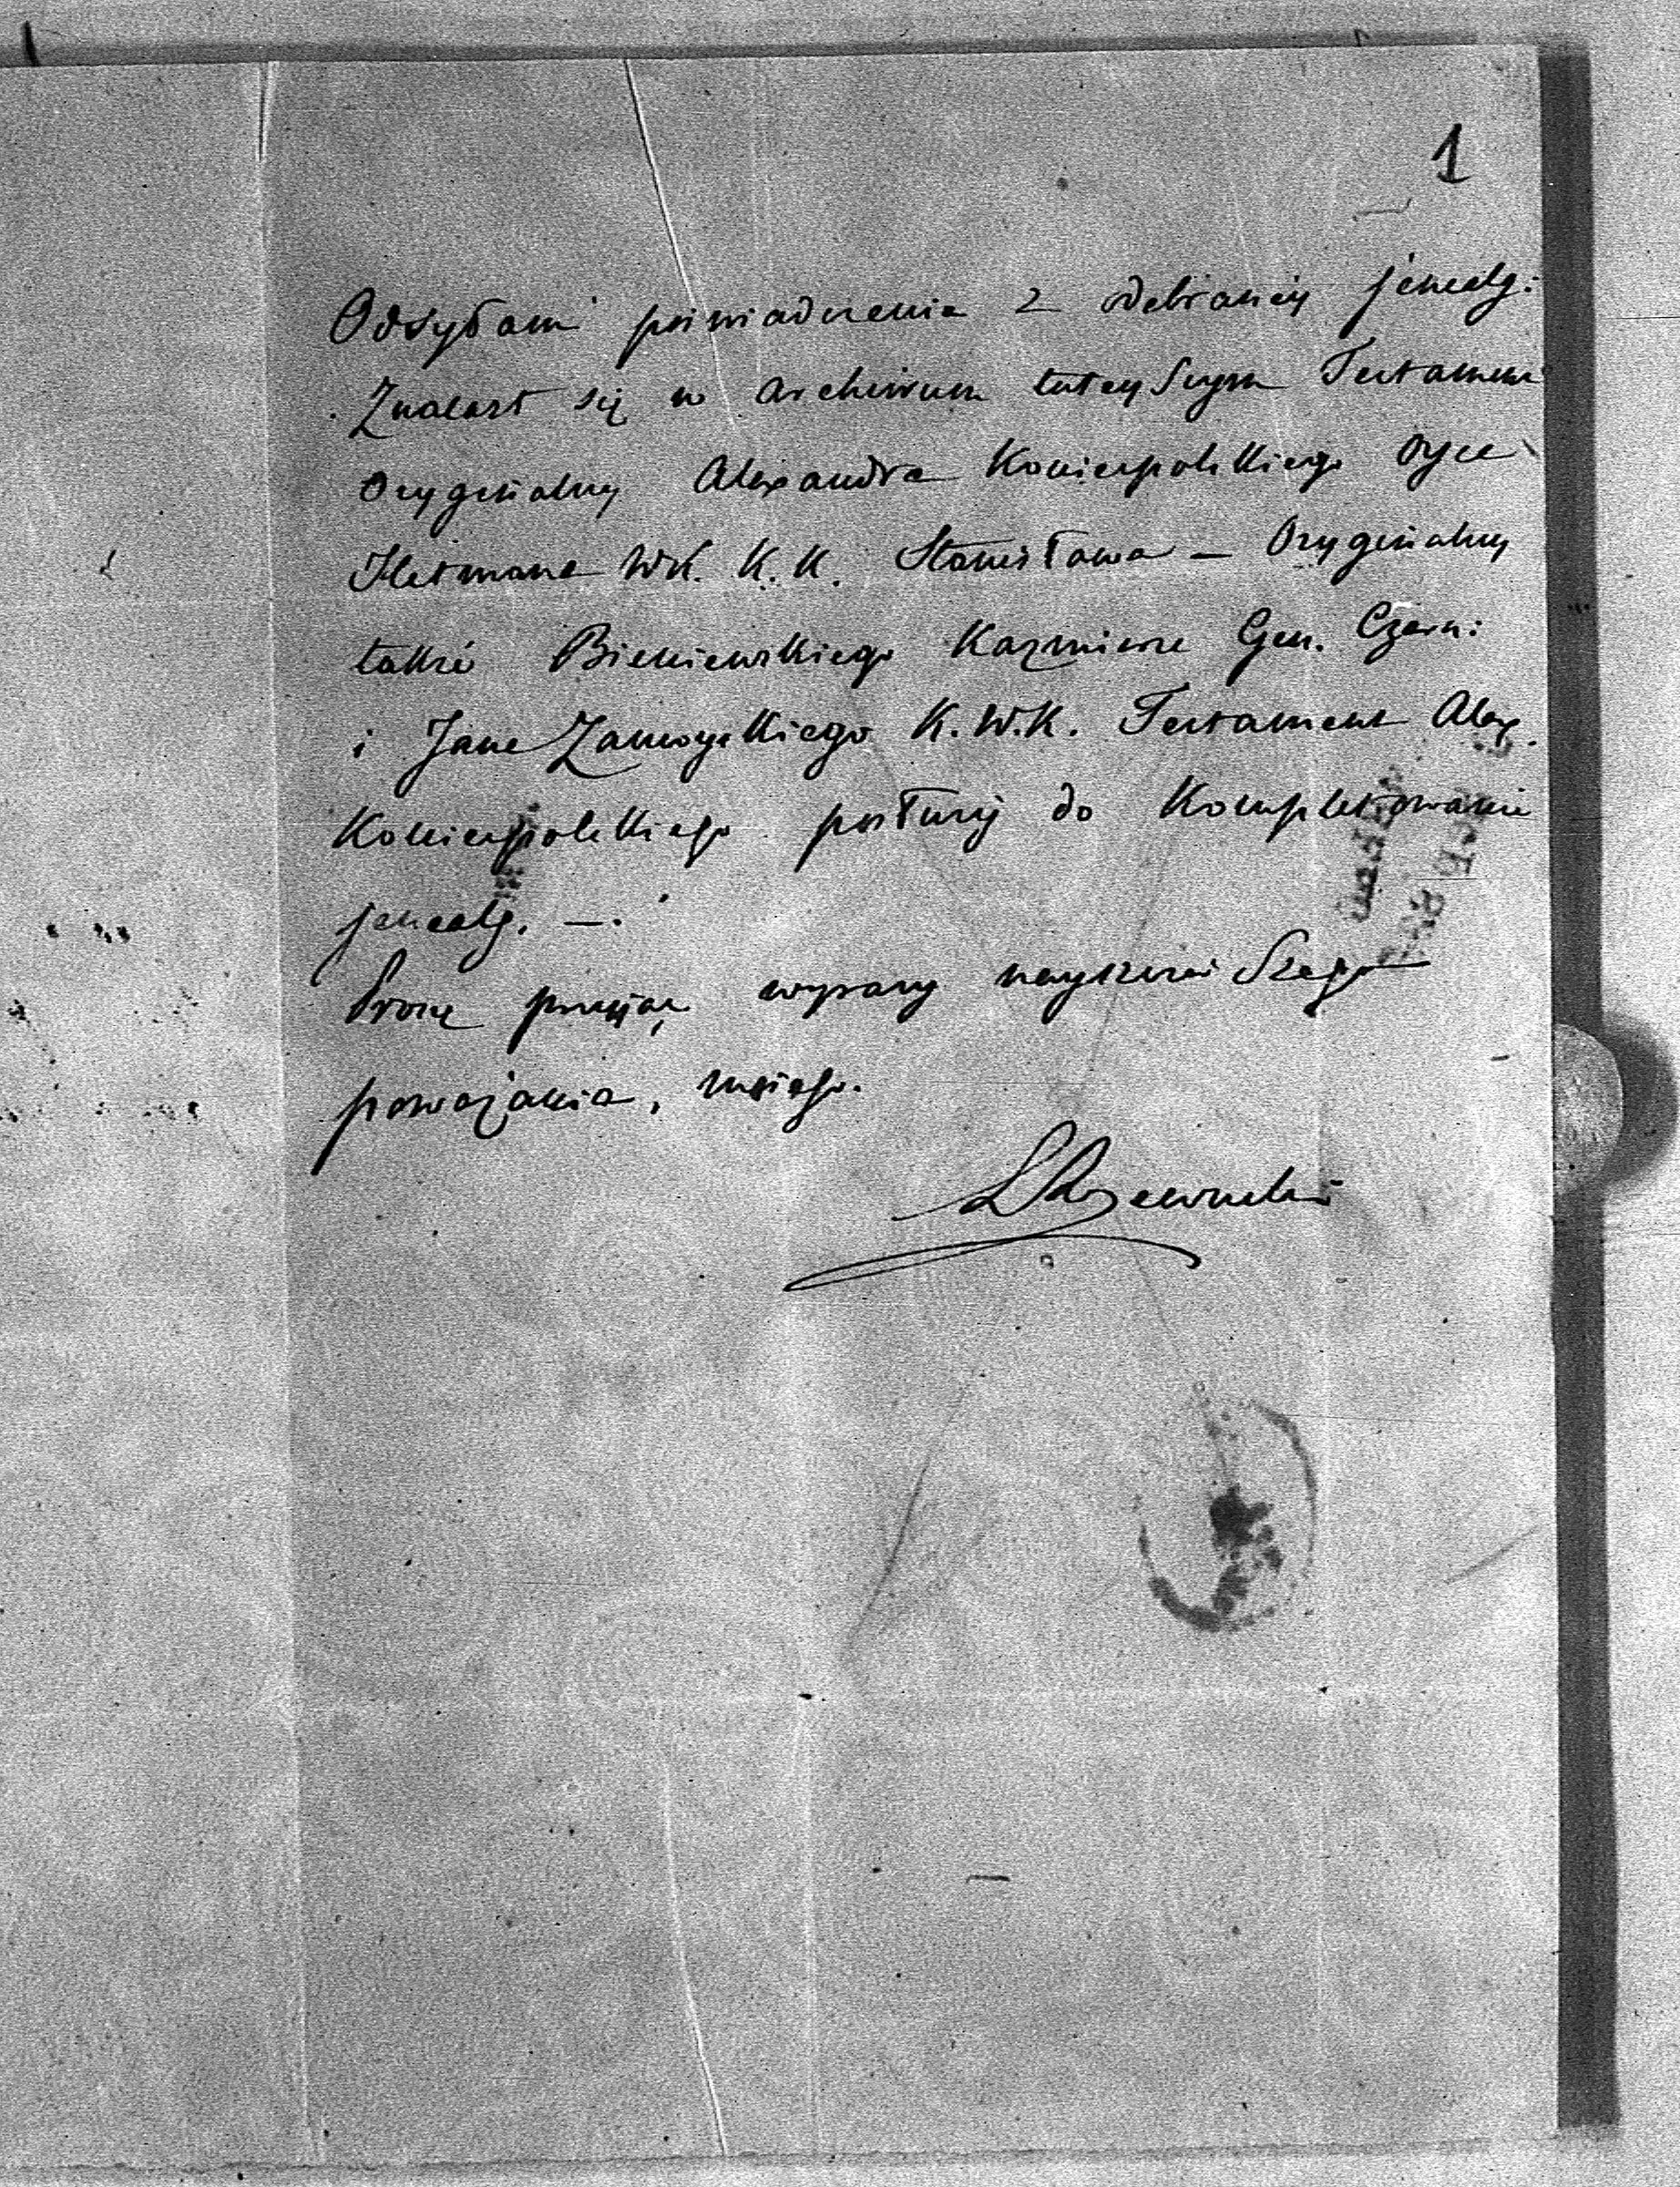 1
Odsyłam poświadczenie z odebraney jenealg:
Znalazł się w Archiwum tuteyszym Testament
Oryginalny Alexandra Koniecpolskiego Oyca
Hetmana WK. K.K. Stanisława – Oryginalny
także Bieniewskiego Kazmierza Gen. Czern:
i Jana Zamoyskiego K.W.K. Testament Alex.
Koniecpolskiego posłuży do Kompletowania
jenealg. –.
Proszę przyjąć wyrazy
poważania, mojego.
LRzewuski